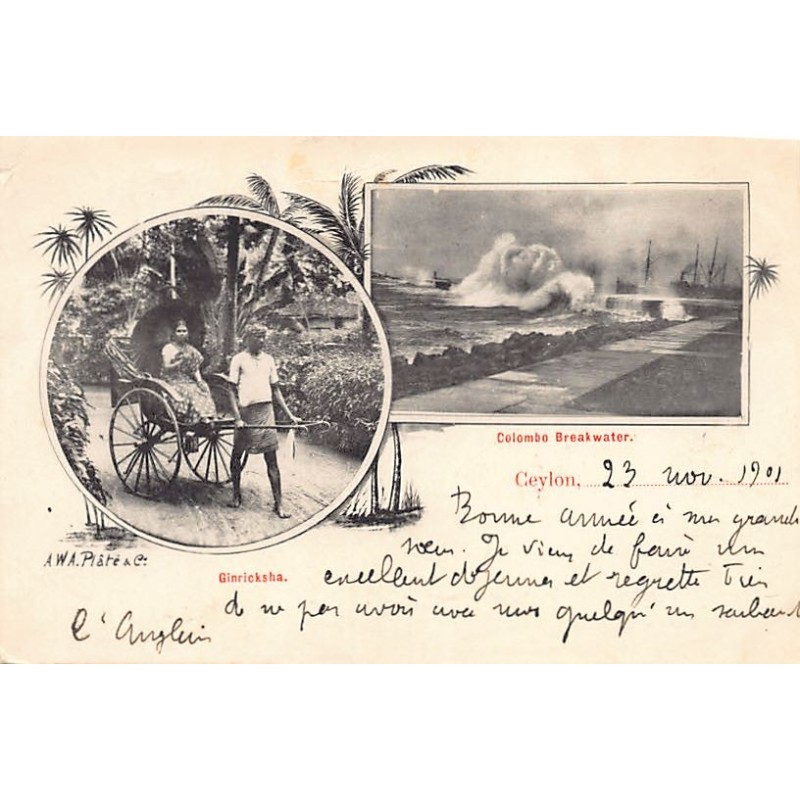 Colombo Breakwater.
Ceylon, 23 nov. 1901
Bonne année à ma grande
soeur. Je viens de faire un
excellent déjeuner et regrette
de ne pas avoir avec nous quelqu'un
A.W.A. Plâté & Co.
Ginricksha.
l'